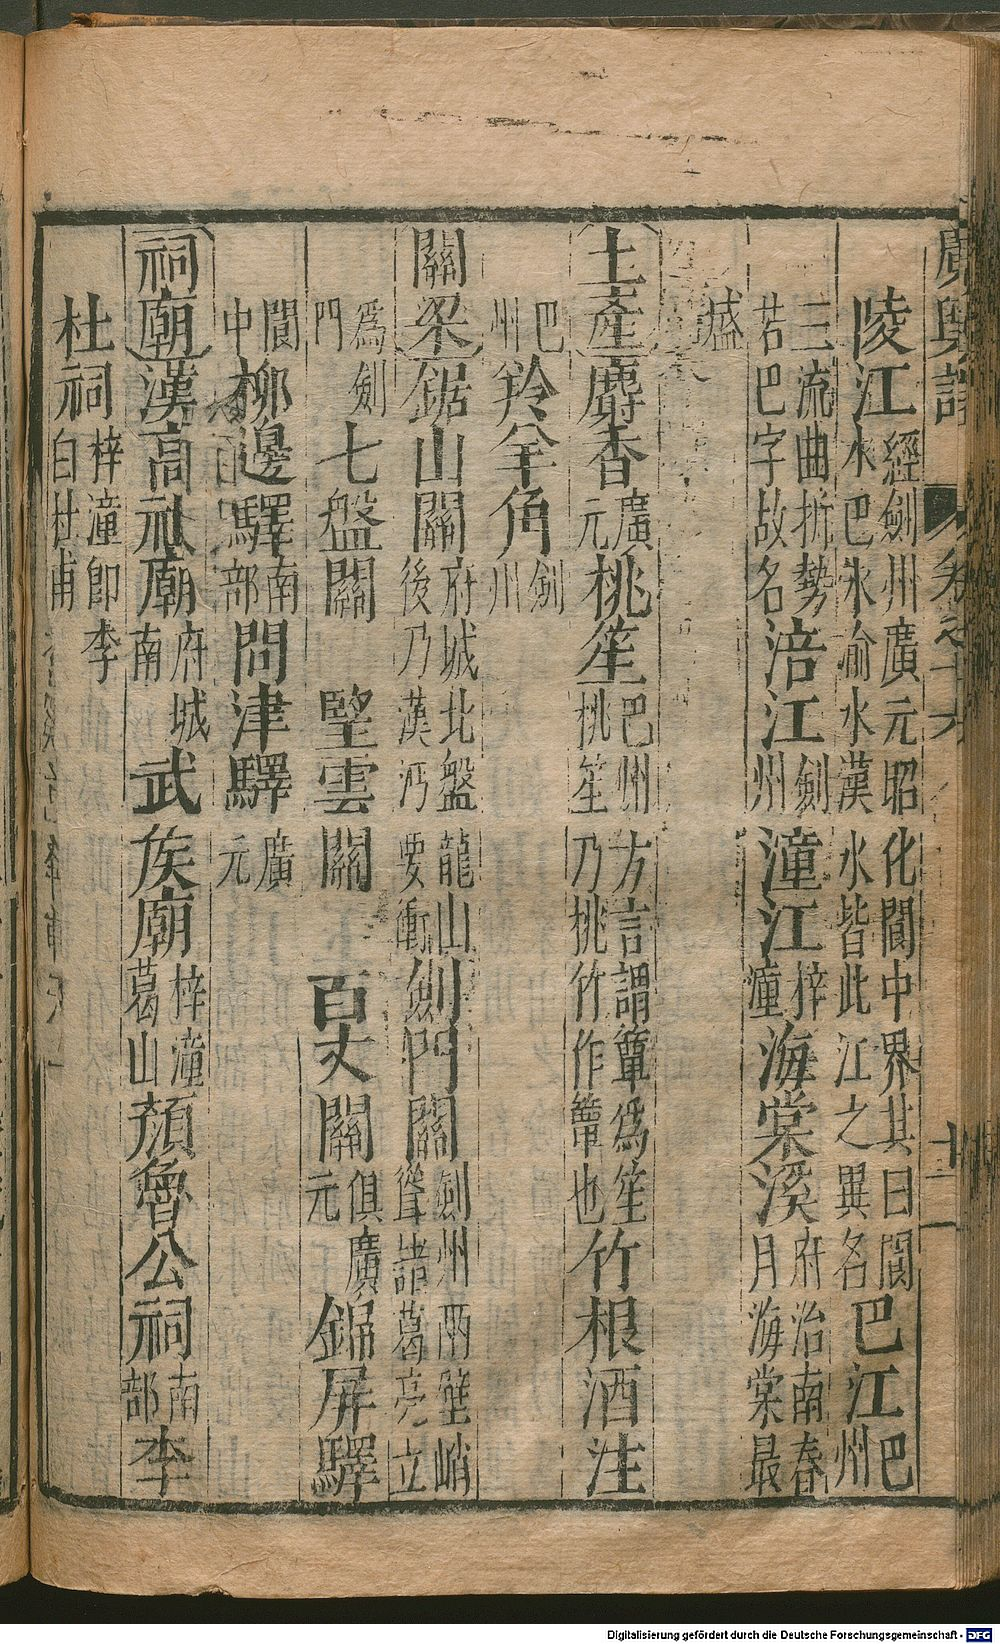 廣輿記 卷之十六 十二
陵江經劍州廣元昭化閬中界其曰閬水巴水渝水漢水皆此江之異名巴江巴州
三流曲折勢若巴字故名涪江劍州潼江梓潼海棠溪府治南春月海棠最
盛
土產麝香廣元桃笙巴州方言謂簟爲笙桃笙乃桃竹作簟也竹根酒注
巴州羚羊角劍州
關梁鋸山關府城北盤龍山後乃漢沔要衝劍門關劍州兩壁峭聳諸葛亮立
爲劍門七盤關 望雲關 百丈關俱廣元錦屏驛
閬中柳邊驛南部問津驛廣元
祠廟漢高祖廟府城南武侯廟梓潼葛山顏魯公祠南部李
杜祠梓潼即李白杜甫
Digitalisierung gefördert durch die Deutsche Forschungsgemeinschaft - DFG